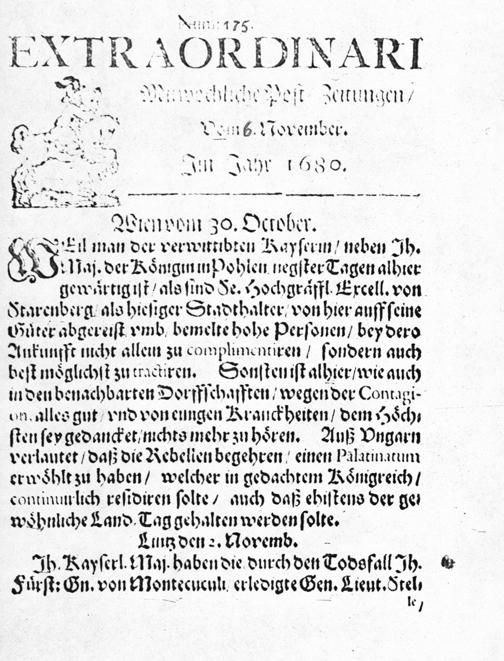 Num: 175.
EXTRAORDINARI
Mitwochliche Post-Zeitungen/
Vom 6. November.
Im Jahr 1680.
Wien vom 30. October.
WEil man der verwittibten Kayserin/ neben Ih.
Maj. der Königin in Pohlen, negster Tagen alhier
gewärtig ist/ als sind Se. Hochgräffl. Excell. von
Starenberg/ als hiesiger Stadthalter/ von hier auff seine
Güter abgereist, umb, bemelte hohe Personen/ bey dero
Ankunfft nicht allein zu complimentiren/ sondern auch
best möglichst zu tractiren. Sonsten ist alhier/ wie auch
in den benachbarten Dorffschafften/ wegen der Contagi-
on, alles gut/ vnd von einigen Kranckheiten/ dem Höch-
sten sey gedancket/ nichts mehr zu hören. Auß Vngarn
verlautet/ daß die Rebellen begehren/ einen Palatinatum
erwöhlt zu haben/ welcher in gedachtem Königreich/
continuirlich residiren solte/ auch daß ehistens der ge-
wöhnliche Land-Tag gehalten werden solte.
Lintz den 2. Novemb.
Ih. Kayserl. Maj. haben die, durch den Todsfall Ih.
Fürst: Gn. von Montecuculi, erledigte Gen. Lieut. Stel-
le/